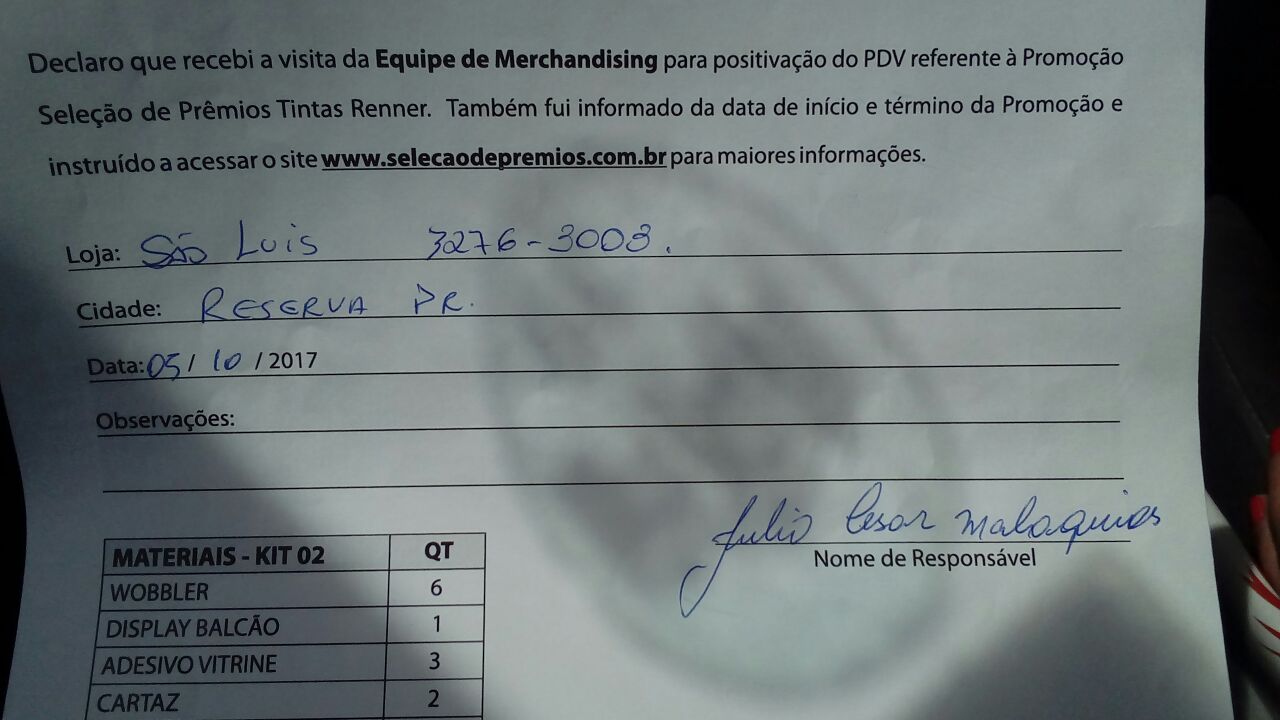 Declaro que recebi a visita da Equipe de Merchandising para positivação do PDV referente à Promoção
Seleção de Prêmios Tintas Renner. Também fui informado da data de início e término da Promoção e
instruído a acessar o site www.selecaodepremios.com.br para maiores informações.
Loja: São Luis 3276-3003.
Cidade: RESERVA PR.
Data: 05/ 10 / 2017
Observações:
Julio Cesar Malaquias
Nome de Responsável
MATERIAIS - KIT 02 QT
WOBBLER 6
DISPLAY BALCÃO 1
ADESIVO VITRINE 3
CARTAZ 2